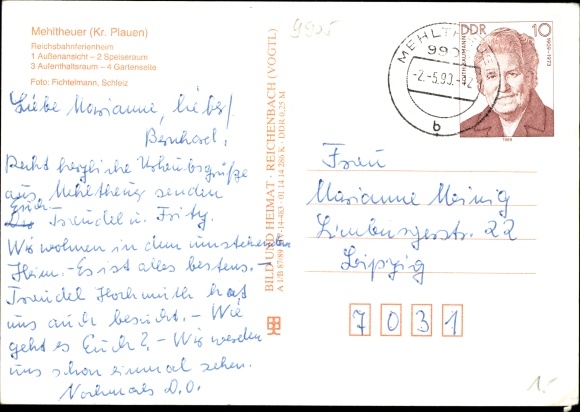 Mehltheuer (Kr. Plauen)
Reichsbahnferienheim
1 Außenansicht – 2 Speiseraum
3 Aufenthaltsraum – 4 Gartenseite
Foto: Fichtelmann, Schleiz
Liebe Marianne, lieber
Bernhard,
Recht herzliche Urlaubsgrüße
aus Mehltheuer senden
Euch
Traudel u. Fritz.
Wir wohnen in dem umseitigen
Heim. – Es ist alles bestens. –
Traudel Hochmuth hat
uns auch besucht. – Wie
geht es Euch? – Wir werden
uns schon einmal sehen.
Nochmals D.O.
BILD UND HEIMAT · REICHENBACH (VOGTL)
A 1/B 87/89 01 14 14 286 K · DDR 0,25 M
9905
MEHLTHEUER
990
-2.-5.90.-12
b
DDR 10
1906-1973
1989
Frau
Marianne Meinig
Limburgerstr. 22
Leipzig
7031
1,-